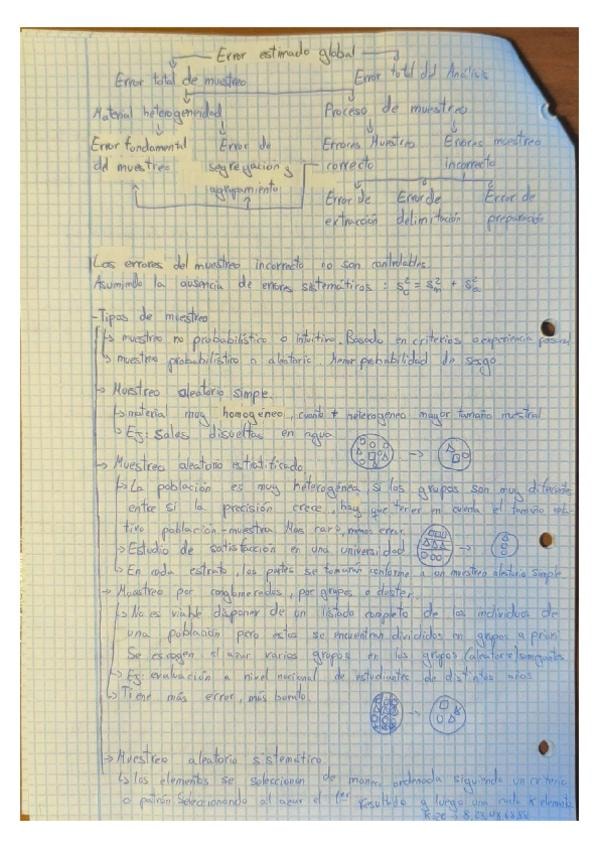 Error estimado global
Error total de muestreo Error total del Análisis
Material heterogeneidad Proceso de muestreo
Error fundamental Error de Errores Muestreo Errores muestreo
del muestreo segregación y correcto incorrecto
agrupamiento
Error de Error de Error de
extracción delimitación preparación
Los errores del muestreo incorrecto no son controlables.
Asumiendo la ausencia de errores sistemáticos : S²c = S²m + S²a
- Tipos de muestreo
↳ muestreo no probabilístico o intuitivo. Basado en criterios o experiencia personal
↳ muestreo probabilístico o aleatorio, menor probabilidad de sesgo
↳ Muestreo aleatorio simple.
↳ material muy homogéneo, cuanto + heterogéneo mayor tamaño muestral
↳ Ej: Sales disueltas en agua
→ Muestreo aleatorio estratificado
↳ La población es muy heterogénea si los grupos son muy diferentes
entre sí la precisión crece, hay que tener en cuenta el tamaño rela-
tivo población-muestra Mas caro, menos error.
↳ Estudio de satisfacción en una universidad
↳ En cada estrato, las partes se tomarán conforme a un muestreo aleatorio simple
→ Muestreo por conglomerados, por grupos o cluster.
↳ No es viable disponer de un listado completo de los individuos de
una población pero estos se encuentran divididos en grupos a priori
Se escogen al azar varios grupos en los grupos (aleatorio)
↳ Ej: evaluación a nivel nacional de estudiantes de distintos años
↳ Tiene más error, más barato
→ Muestreo aleatorio sistemático
↳ los elementos se seleccionan de manera ordenada siguiendo un criterio
o patrón Seleccionando al azar el 1er resultado y luego uno cada k elementos